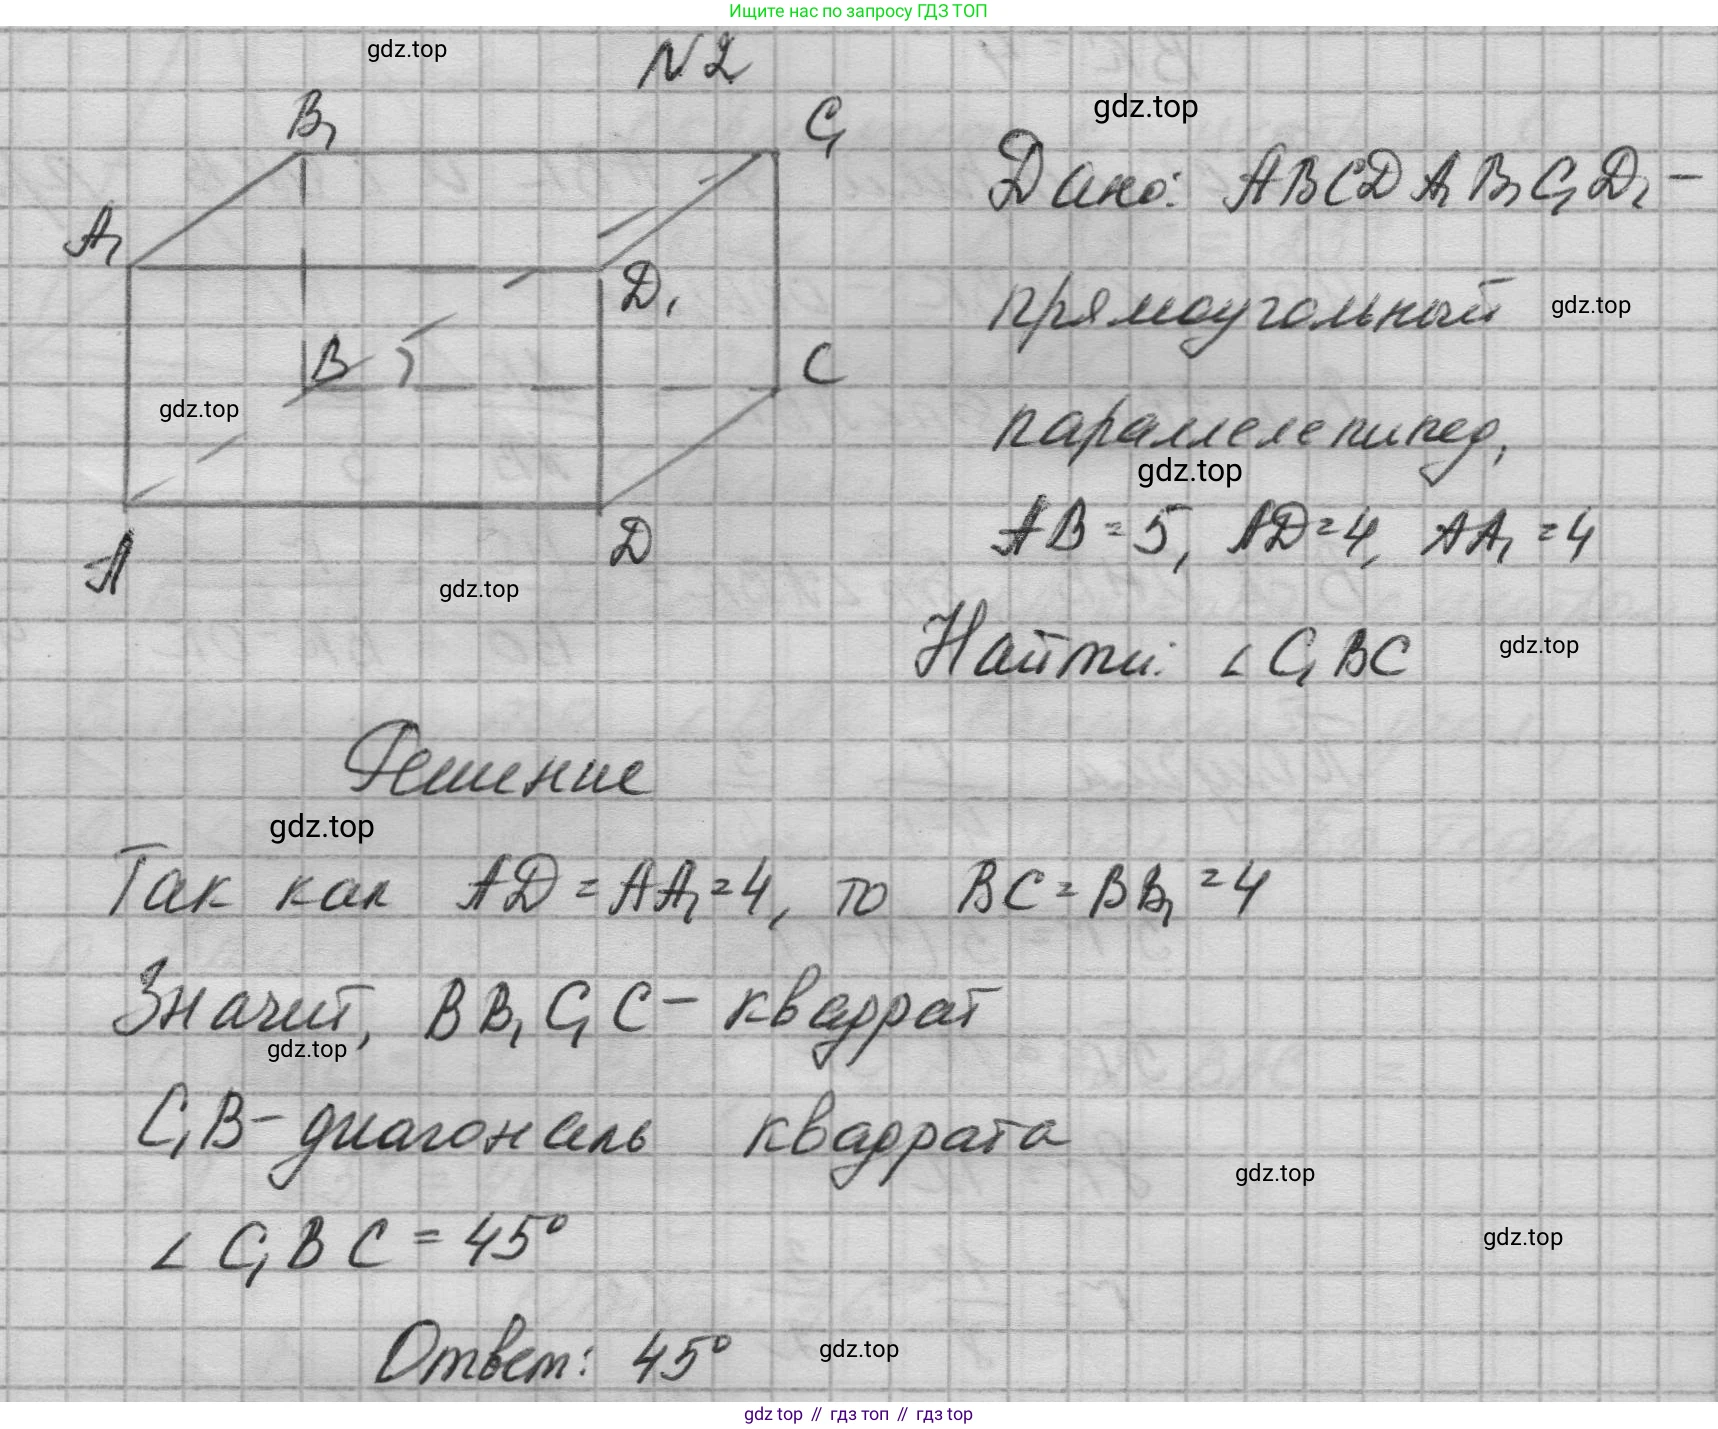 Ищите нас по запросу ГДЗ ТОП
gdz.top
N2
gdz.top
B₁
C₁
Дано: ABCDA₁B₁C₁D₁ –
A₁
D₁
прямоугольный
gdz.top
B
C
gdz.top
параллелепипед,
gdz.top
AB = 5, AD = 4, AA₁ = 4
A
D
gdz.top
Найти: ∠C₁BC
gdz.top
Решение
gdz.top
Так как AD = AA₁ = 4, то BC = BB₁ = 4
Значит, BB₁C₁C – квадрат
gdz.top
C₁B – диагональ квадрата
gdz.top
∠C₁BC = 45°
gdz.top
Ответ: 45°
gdz.top
gdz top // гдз топ // gdz top